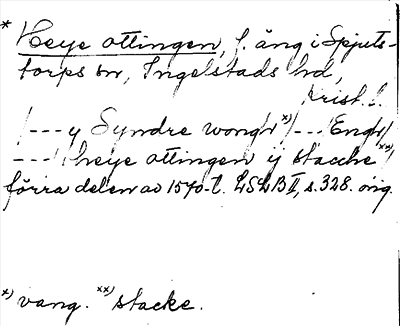 * Heye ottingen, f. äng i Spjuts-
torps sn, Ingelstads hd,
Krist. l.
/--- y Syndre wongh x)/--- Engh/
--- heye ottingen ij stacke xx)
förra delen av 1570-t. LSLB II, s. 328. orig.
x) vang. xx) stacke.